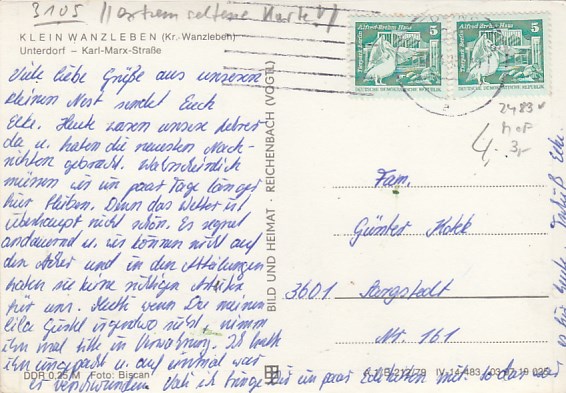 3105 // extrem seltene Karte!/
KLEIN WANZLEBEN (Kr. Wanzleben)
Unterdorf – Karl-Marx-Straße
Viele liebe Grüße aus unserem
kleinen Nest sendet Euch
Elke. Heute waren unsere Lehrer
da u. haben die neuesten Nach-
richten gebracht. Wahrscheinlich
müssen wir ein paar Tage länger
hier bleiben. Denn das Wetter ist
überhaupt nicht schön. Es regnet
andauernd u. wir können nicht auf
den Acker und in den Abteilungen
haben sie keine richtige Arbeit
für uns. Mutti wenn Du meinen
lila Gürtel irgendwo siehst, nimm
ihn mal bitte in Verwahrung. Ich hatte
ihn umgepackt u. auf einmal war
er verschwunden. Vati ich bringe Dir ein paar mit. So das
es für heute. Tschüß Elke.
BILD UND HEIMAT · REICHENBACH (VOGTL)
Alfred-Brehm-Haus 5
Tierpark Berlin
DEUTSCHE DEMOKRATISCHE REPUBLIK
Alfred-Brehm-Haus 5
Tierpark Berlin
DEUTSCHE DEMOKRATISCHE REPUBLIK
2483
4,-
Fam.
Günter
3601
Nr. 161
DDR 0,25 M Foto: Biscan
IV-14-483